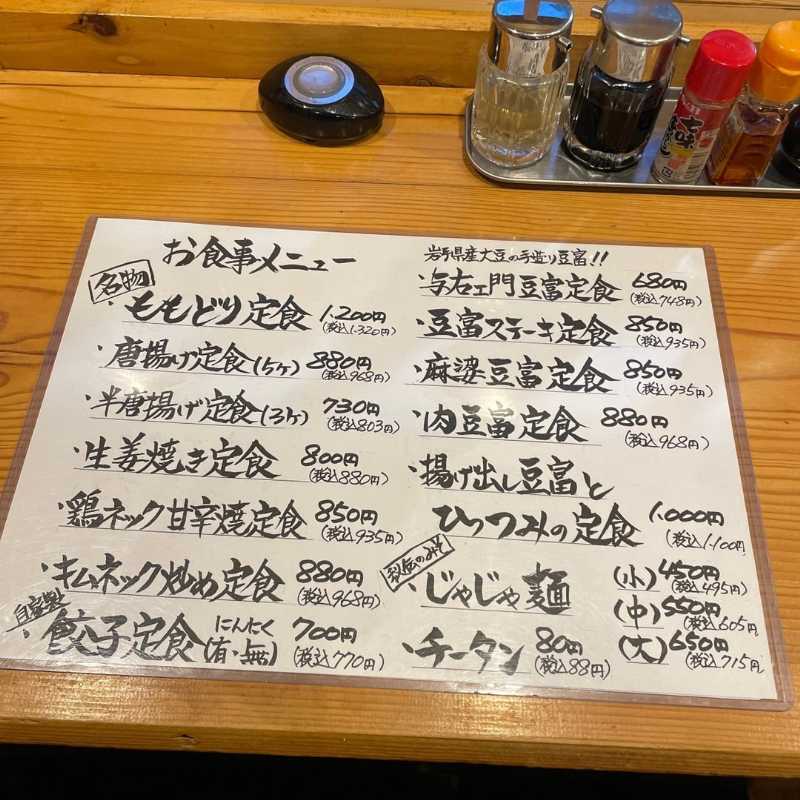 お食事メニュー
名物
・ももどり定食 1.200円
(税込1.320円)
・唐揚げ定食(5ヶ) 880円
(税込968円)
・半唐揚げ定食(3ヶ) 730円
(税込803円)
・生姜焼き定食 800円
(税込880円)
・鶏ネック甘辛焼定食 850円
(税込935円)
・キムネック炒め定食 880円
(税込968円)
自家製
・餃子定食 にんにく(有・無) 700円
(税込770円)
岩手県産大豆の手造り豆富!!
・与右ェ門豆富定食 680円
(税込748円)
・豆富ステーキ定食 850円
(税込935円)
・麻婆豆富定食 850円
(税込935円)
・肉豆富定食 880円
(税込968円)
・揚げ出し豆富と
ひっつみの定食 1.000円
(税込1.100円
秘伝のみそ
・じゃじゃ麺 (小)450円
(税込495円)
(中)550円
(税込605円
(大)650円
(税込715円
・チータン 80円
(税込88円)
七味